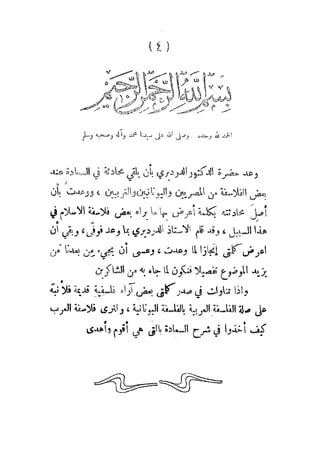 ( ٤ )
بسم الله الرحمن الرحيم
الحمد لله وحده . وصلى الله على سيدنا محمد وآله وصحبه وسلم
وعد حضرة الدكتور الدرديري بأن يلقي محادثة في السعادة عند
بعض الفلاسفة من المصريين واليونانيين والغربيين ، ووعدت بأن
أصل محادثته بكلمة أعرض بها ما يراه بعض فلاسفة الاسلام في
هذا السبيل ، وقد قام الاستاذ الدرديري بما وعد فوفّى ، وبقي أن
اعرض كلمتي إنجازا لما وعدت ، وعسى أن يجيء من بعدنا من
يزيد الموضوع تفصيلا فنكون لما جاء به من الشاكرين
واذا تناولت في صدر كلمتي بعض آراء فلسفية قديمة فلأنبّه
على صلة الفلسفة العربية بالفلسفة اليونانية ، ولنرى فلاسفة العرب
كيف أخذوا في شرح السعادة بالتي هي أقوم وأهدى